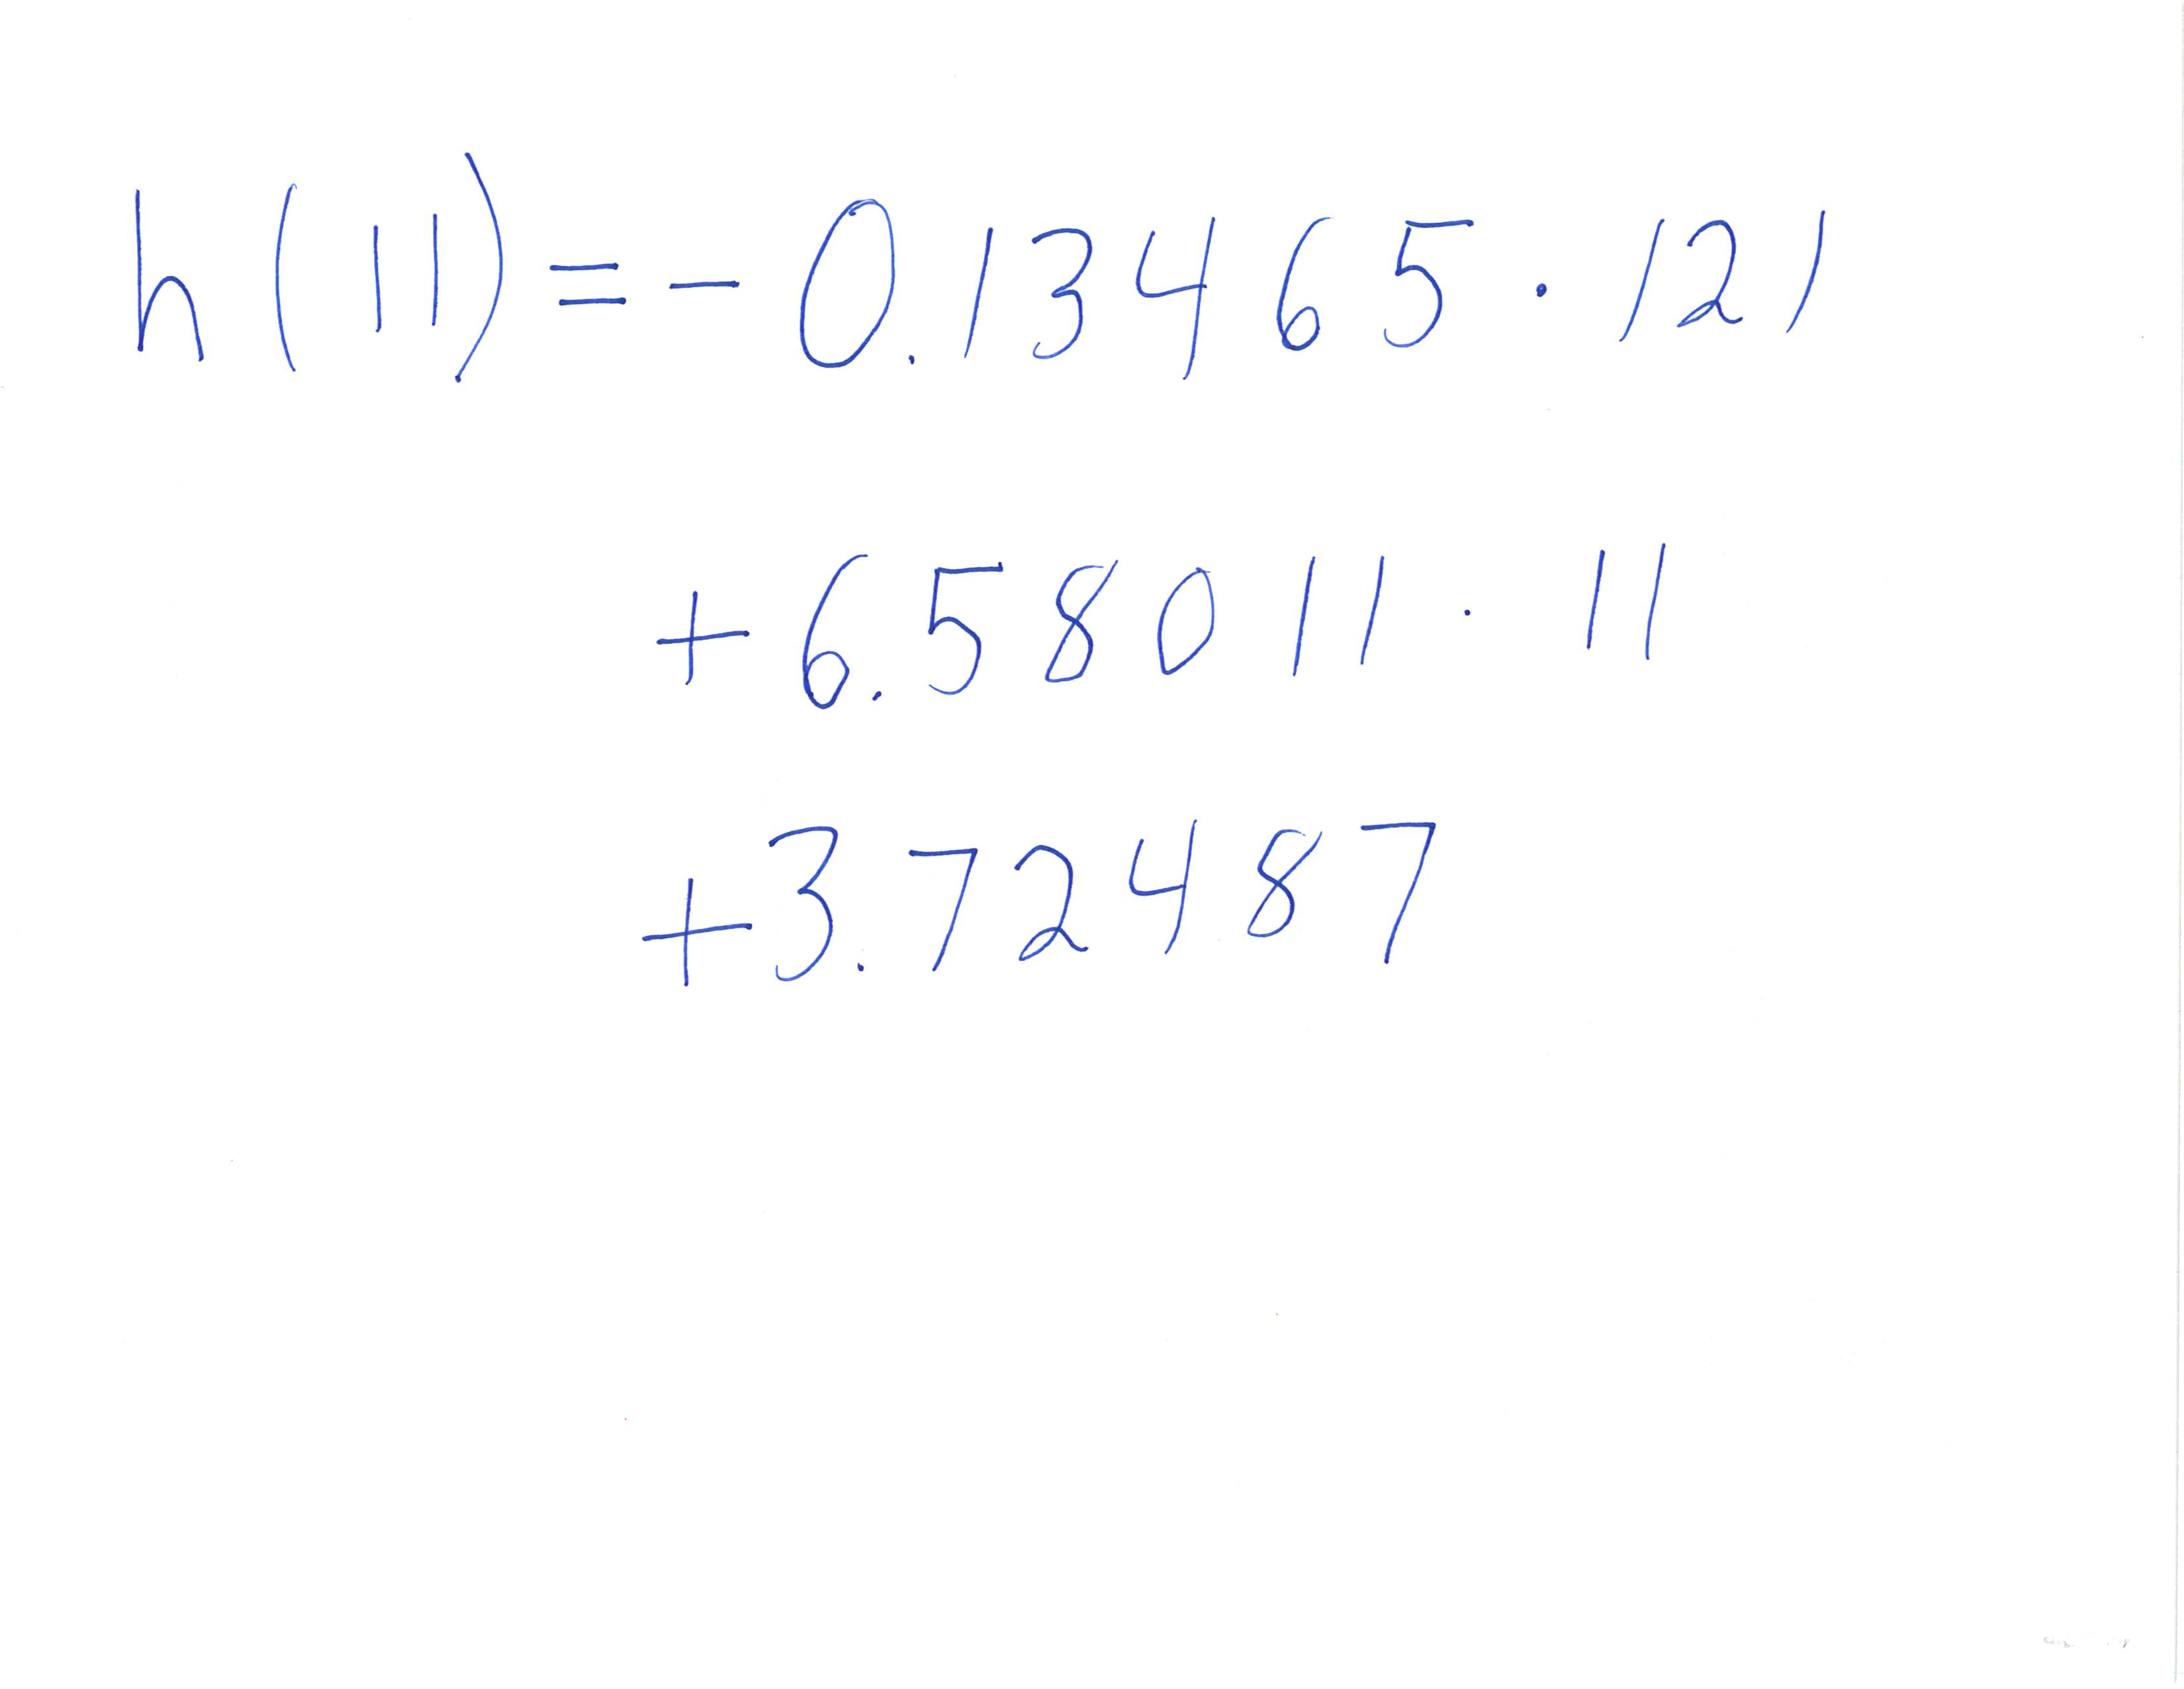 h(11) = -0.13465 · 121
+ 6.58011 · 11
+ 3.72487